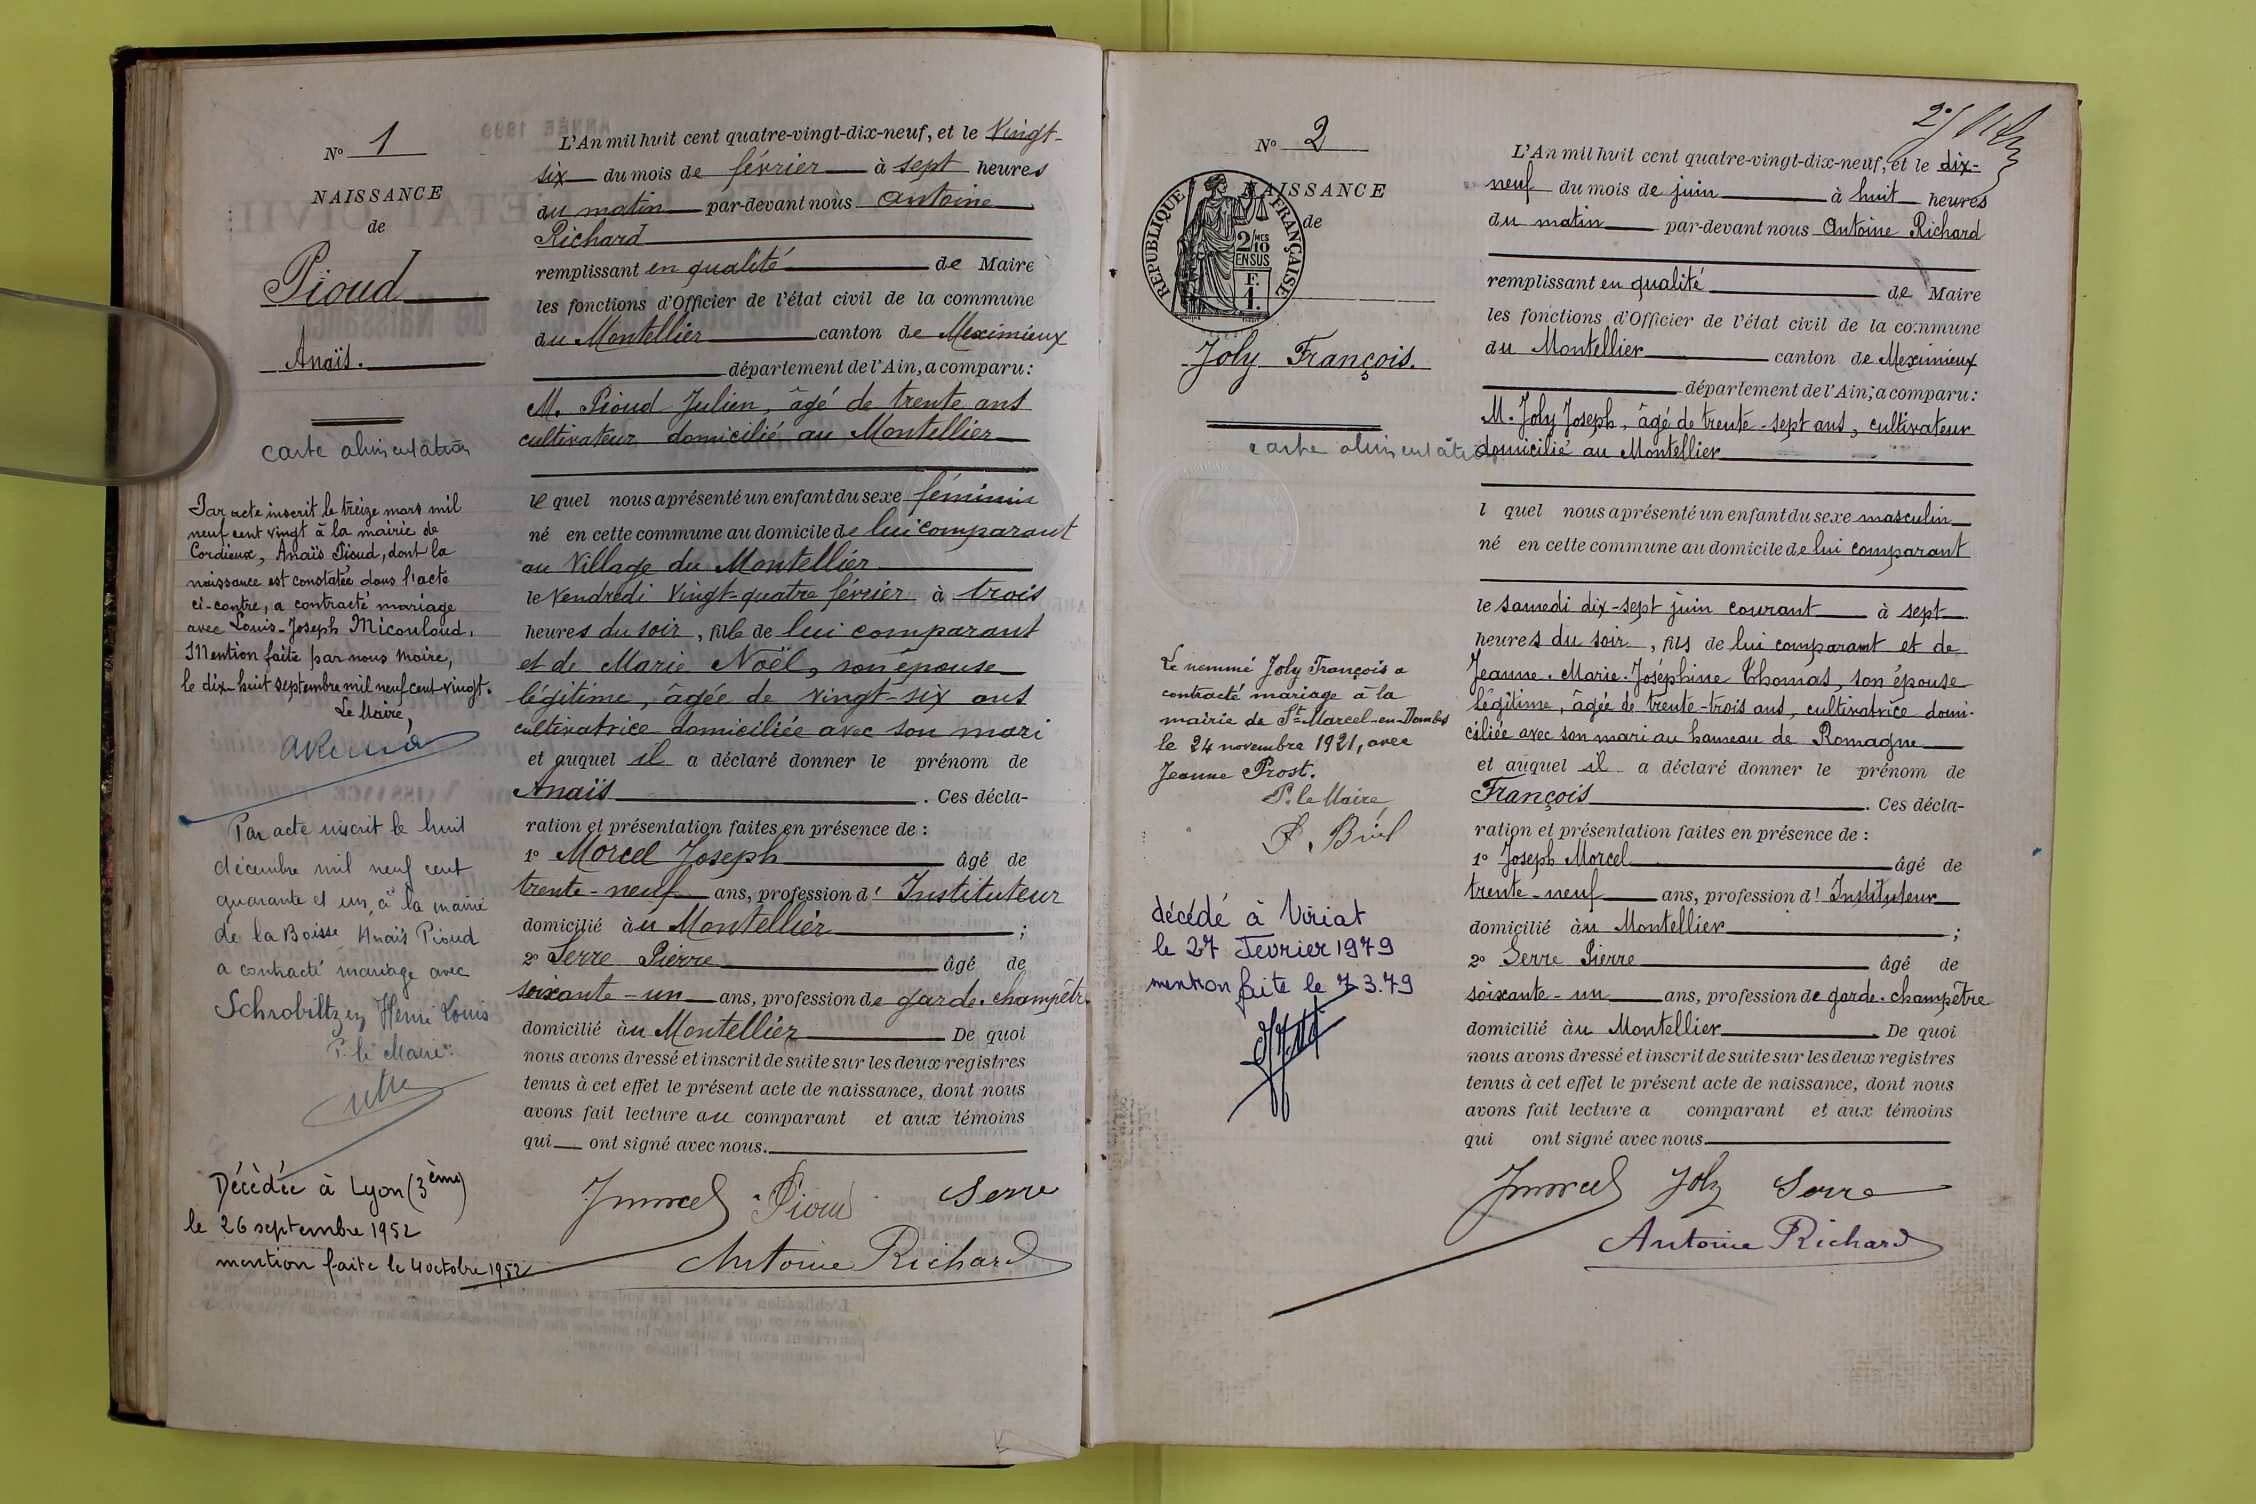 N° 1
NAISSANCE
de
Pioud
Anaïs.
carte alimentation
Par acte inscrit le treize mars mil
neuf cent vingt à la mairie de
Cordieux, Anaïs Pioud, dont la
naissance est constatée dans l'acte
ci-contre, a contracté mariage
avec Louis-Joseph Micouloud.
Mention faite par nous Maire,
le dix-huit septembre mil neuf cent vingt.
Le Maire,
Par acte inscrit le huit
décembre mil neuf cent
quarante et un, à la mairie
de la Boisse Anaïs Pioud
a contracté mariage avec
Schrobiltzen Henri Louis
P. le Maire
Décédée à Lyon (3ème)
le 26 septembre 1952
mention faite le 4 octobre 1952
L'An mil huit cent quatre-vingt-dix-neuf, et le Vingt-
six du mois de février à sept heures
du matin par-devant nous Antoine
Richard
remplissant en qualité de Maire
les fonctions d'Officier de l'état civil de la commune
du Montellier canton de Meximieux
département de l'Ain, a comparu :
M. Pioud Julien, âgé de trente ans
cultivateur domicilié au Montellier
lequel nous a présenté un enfant du sexe féminin
né en cette commune au domicile de lui comparant
au Village du Montellier
le Vendredi Vingt-quatre février à trois
heures du soir, fille de lui comparant
et de Marie Noël, son épouse
légitime, âgée de vingt-six ans
cultivatrice domiciliée avec son mari
et auquel il a déclaré donner le prénom de
Anaïs . Ces décla-
ration et présentation faites en présence de :
1° Morcel Joseph âgé de
trente-neuf ans, profession d'Instituteur
domicilié au Montellier ;
2° Serre Pierre âgé de
soixante-un ans, profession de garde-champêtre
domicilié au Montellier De quoi
nous avons dressé et inscrit de suite sur les deux registres
tenus à cet effet le présent acte de naissance, dont nous
avons fait lecture au comparant et aux témoins
qui ont signé avec nous.
Jmorcel Pioud Serre
Antoine Richard
N° 2
NAISSANCE
de
REPUBLIQUE FRANÇAISE
2/10 MES
EN SUS
F.
1.
Joly François.
carte alimentation
Le nommé Joly François a
contracté mariage à la
mairie de St-Marcel-en-Dombes
le 24 novembre 1921, avec
Jeanne Prost.
P. le Maire,
décédé à Viriat
le 27 Fevrier 1979
mention faite le 7.3.79
L'An mil huit cent quatre-vingt-dix-neuf, et le dix-
neuf du mois de juin à huit heures
du matin par-devant nous Antoine Richard
remplissant en qualité de Maire
les fonctions d'Officier de l'état civil de la commune
du Montellier canton de Meximieux
département de l'Ain, a comparu :
M. Joly Joseph, âgé de trente-sept ans, cultivateur
domicilié au Montellier
l quel nous a présenté un enfant du sexe masculin
né en cette commune au domicile de lui comparant
le samedi dix-sept juin courant à sept
heures du soir, fils de lui comparant et de
Jeanne-Marie-Joséphine Thomas, son épouse
légitime, âgée de trente-trois ans, cultivatrice domi-
ciliée avec son mari au hameau de Romagne
et auquel il a déclaré donner le prénom de
François . Ces décla-
ration et présentation faites en présence de :
1° Joseph Morcel âgé de
trente-neuf ans, profession d'Instituteur
domicilié au Montellier ;
2° Serre Pierre âgé de
soixante-un ans, profession de garde-champêtre
domicilié au Montellier De quoi
nous avons dressé et inscrit de suite sur les deux registres
tenus à cet effet le présent acte de naissance, dont nous
avons fait lecture a comparant et aux témoins
qui ont signé avec nous.
Jmorcel Joly Serre
Antoine Richard